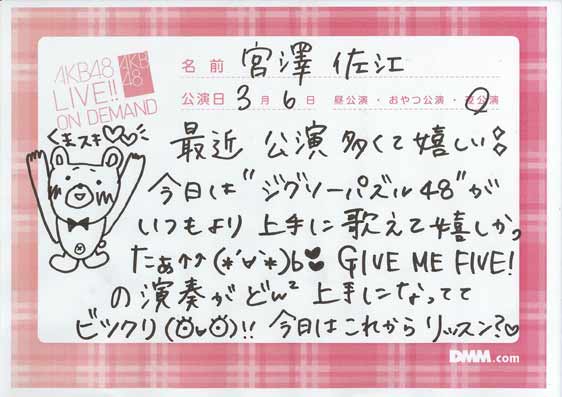 AKB48
LIVE!!
ON DEMAND
AKB
48
名前 宮澤 佐江
公演日 3月6日 昼公演・おやつ公演・夜公演
くまスキ♡♡
最近 公演多くて嬉しい!
今日は"ジグソーパズル48"が
いつもより上手に歌えて嬉しかっ
たぁ↑↑(*'∨'*)b♥ GIVE ME FIVE!
の演奏がどんどん上手になってて
ビックリ(ŎᴗŎ)!! 今日はこれからリッスン?♡
DMM.com